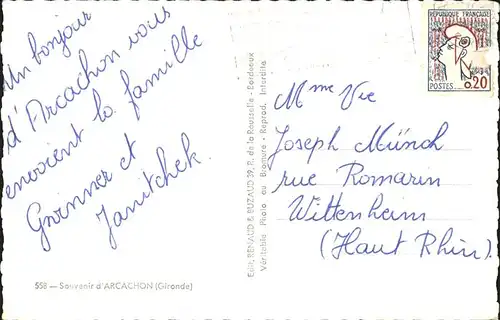 Un bonjour
d'Arcachon vous
envoient la famille
Grinner et
Janitchek.
558 — Souvenir d'ARCACHON (Gironde)
Edit. RENAUD & BUZAUD 39, R. de la Rousselle - Bordeaux
Véritable Photo au Bromure - Reprod. Interdite
REPUBLIQUE FRANÇAISE
POSTES 0,20
Mme Vve
Joseph Münch
rue Romarin
Wittenheim
(Haut Rhin).